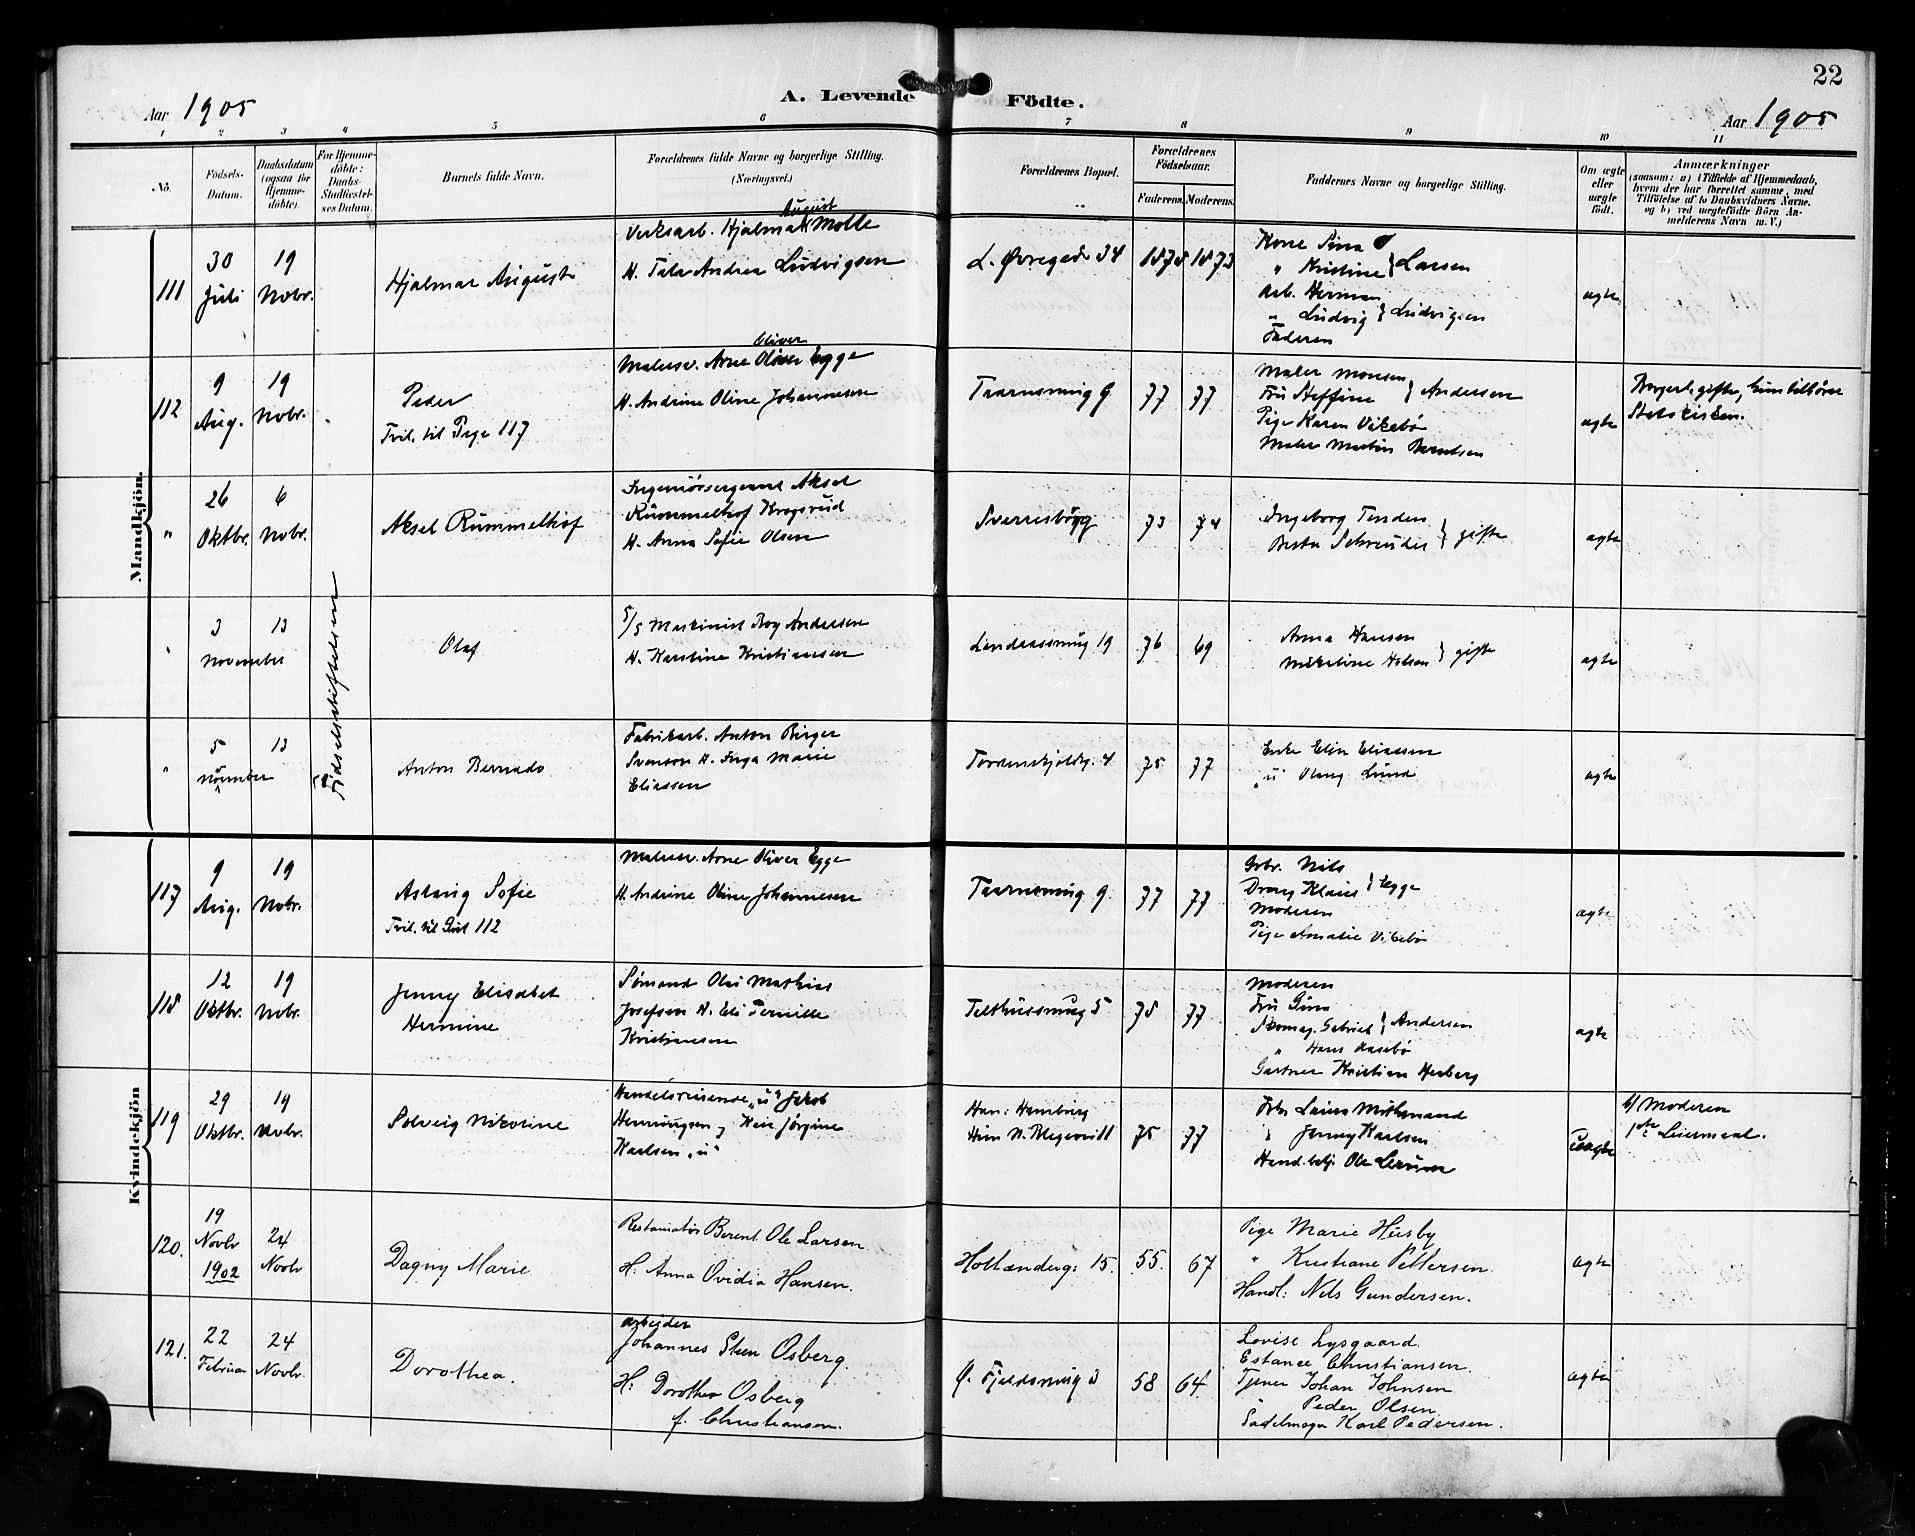 22
Aar 1905
A. Levende Födte.
Aar 1905
1 2 3 4 5 6 7 8 9 10 11
No.
Födsels-
Datum.
Daabsdatum
(ogsaa for
Hjemme-
döbte).
For Hjemme-
döbte:
Daabs-
Stadfæstel-
ses Datum.
Barnets fulde Navn.
Forældrenes fulde Navne og borgerlige Stilling.
(Næringsvei.)
Forældrenes Bopæl.
Forældrenes
Födselsaar.
Faderens. Moderens.
Faddernes Navne og borgerlige Stilling.
Om ægte
eller
uægte
födt.
Anmærkninger
(saasom: a) i Tilfælde af Hjemmedaab,
hvem der har forrettet samme, med
Tilföielse af to Daabsvidners Navne.
og b) ved uægtefödte Börn An-
melderens Navn m. V.)
Mandkjön.
Födselsstiftelsen
111
30
Juli
19
Novbr.
Hjalmar August
August
Verksarb. Hjalmar Molle
H. Tala Andrea Ludvigsen
L. Øvregade 34
1875
1873
Kone Sina
" Kristine } Larsen
Arb. Herman
" Ludvig } Ludvigsen
Faderen
ægte
112
9
Aug.
19
Novbr.
Peder
Tvil. til Pige 117
Oliver
Malersv. Arne Oliver Egge
H. Andrine Oline Johannesen
Taarnsmug 9
77
77
Maler Monsen
Fru Steffine } Andersen
Pige Karen Vikebø
Maler Martin Berntsen
ægte
Borgerl. gifte, hun tilhører
Statskirken.
"
26
Oktbr.
6
Novbr.
Aksel Rummelhof
Ingeniørsergeant Aksel
Rummelhof Krogsrud
H. Anna Sofie Olsen
Sverresborg
73
74
Ingeborg Tenden
Berta Schreuder } gifte
ægte
"
3
November
13
Olaf
5/5 Maskinist Roy Andersen
H. Karstine Kristiansen
Lindaassmug 19
76
69
Anna Hansen
Mikeline Holsen } gifte
ægte
"
5
November
13
Anton Bernado
Fabrikarb. Anton Birger
Svenson H. Inga Marie
Eliassen
Tordenskjoldsg. 4
75
77
Enke Elin Eliassen
"u" Olang Lund
ægte
Kvindekjön
117
9
Aug.
19
Novbr.
Astrug Sofie
Tvil. til Gut 112
Malersv. Arne Oliver Egge
H. Andrine Oline Johannesen
Taarnsmug 9
77
77
Grbr. Nils
Dreng Klaus } Egge
Moderen
Pige Amalie Vikebø
ægte
118
12
Oktbr.
19
Novbr.
Jenny Elisabet
Hermine
Sømand Olai Mathias
Josefsen H. Eli Pernille
Kristiansen
Telthussmug 5
75
77
Moderen
Fru Gina
Skomag. Gabriel } Andersen
" Hans Aasebø
Gartner Kristian Herberg
ægte
119
29
Oktbr.
19
Novbr.
Solveig Nikoline
Handelsreisende "u" Jakob
Henningsen, Kvin Jørgine
Karlsen "u"
Han: Hamburg
Hun N. Blegevei 11
75
77
Frkn Laura Michmand
" Jenny Karlsen
Hand. betj. Ole Lerum
Uægte
b/ Moderen
1ste Leiermaal.
120.
19
Novbr
1902
24
Novbr
Dagny Marie
Restauratør Berent Ole Larsen
H: Anna Ovidia Hansen.
Hollænderg: 15.
55.
67
Pige Marie Husby
" Kristiane Pettersen.
Handl: Nels Gundersen.
ægte
121.
22
Februar
24
Novbr.
Dorothea.
arbeider
Johannes Steen Osberg.
H: Dorothea Osberg
f. Christiansen.
Ø. Fjeldsmug 3
58
64.
Lovise Lysgaard.
Estance Christiansen.
Tjener Johan Johnsen
Peder Olsen.
Sadelmager Karl Pedersen.
ægte